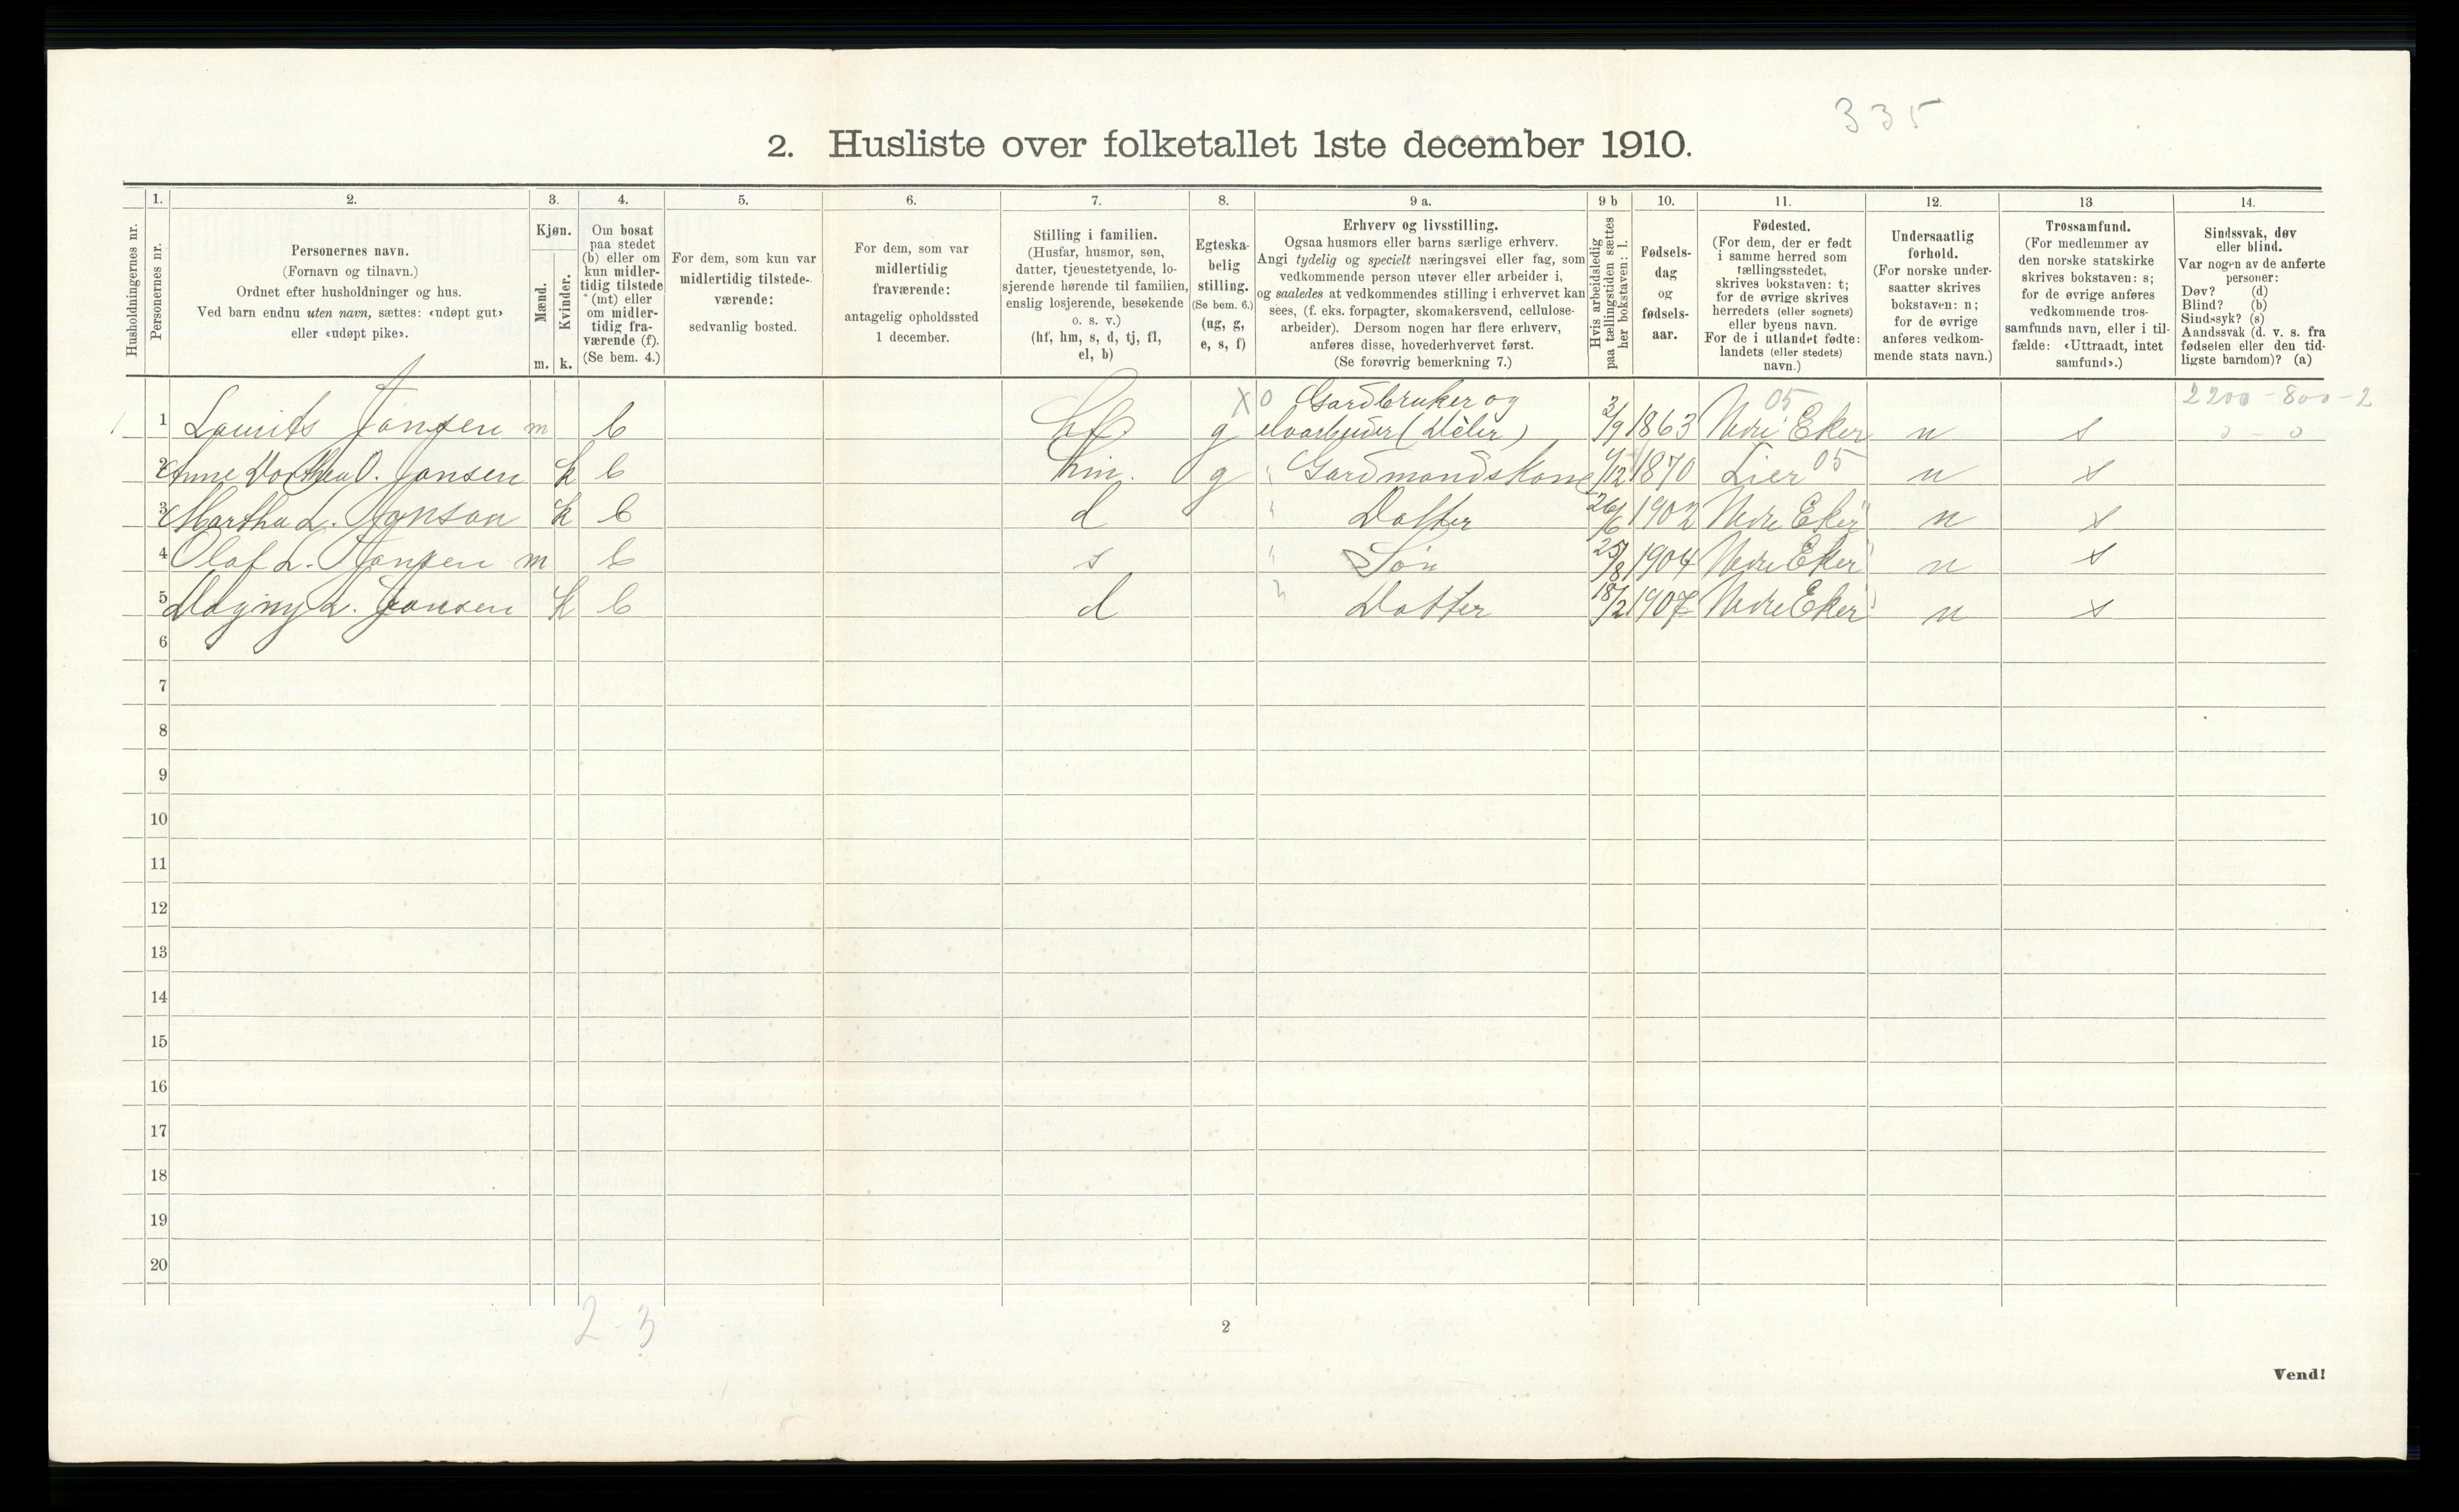 335
2. Husliste over folketallet 1ste december 1910.
Husholdningernes nr.
1.
Personernes nr.
2.
Personernes navn.
(Fornavn og tilnavn.)
Ordnet efter husholdninger og hus.
Ved barn endnu uten navn, sættes: «udøpt gut»
eller «udøpt pike».
3.
Kjøn.
Mænd.
m.
Kvinder.
k.
4.
Om bosat
paa stedet
(b) eller om
kun midler-
tidig tilstede
(mt) eller
om midler-
tidig fra-
værende (f).
(Se bem. 4.)
5.
For dem, som kun var
midlertidig tilstede-
værende:
sedvanlig bosted.
6.
For dem, som var
midlertidig
fraværende:
antagelig opholdssted
1 december.
7.
Stilling i familien.
(Husfar, husmor, søn,
datter, tjenestetyende, lo-
sjerende hørende til familien,
enslig losjerende, besøkende
o. s. v.)
(hf, hm, s, d, tj, fl,
el, b)
8.
Egteska-
belig
stilling.
(Se bem. 6.)
(ug, g,
e, s, f)
9 a.
Erhverv og livsstilling.
Ogsaa husmors eller barns særlige erhverv.
Angi tydelig og specielt næringsvei eller fag, som
vedkommende person utøver eller arbeider i,
og saaledes at vedkommendes stilling i erhvervet kan
sees, (f. eks. forpagter, skomakersvend, cellulose-
arbeider). Dersom nogen har flere erhverv,
anføres disse, hovederhvervet først.
(Se forøvrig bemerkning 7.)
9 b
Hvis arbeidsledig
paa tællingstiden sættes
her bokstaven: l.
10.
Fødsels-
dag
og
fødsels-
aar.
11.
Fødested.
(For dem, der er født
i samme herred som
tællingsstedet,
skrives bokstaven: t;
for de øvrige skrives
herredets (eller sognets)
eller byens navn.
For de i utlandet fødte:
landets (eller stedets)
navn.)
12.
Undersaatlig
forhold.
(For norske under-
saatter skrives
bokstaven: n;
for de øvrige
anføres vedkom-
mende stats navn.)
13.
Trossamfund.
(For medlemmer av
den norske statskirke
skrives bokstaven: s;
for de øvrige anføres
vedkommende tros-
samfunds navn, eller i til-
fælde: «Uttraadt, intet
samfund».)
14.
Sindssvak, døv
eller blind.
Var nogen av de anførte
personer:
Døv? (d)
Blind? (b)
Sindssyk? (s)
Aandssvak (d. v. s. fra
fødselen eller den tid-
ligste barndom)? (a)
X 0 Gardbruker og 05 2200-800-2
1 Laurits Jansen m b hf g 3/9 1863 Nedre Eker n s 0-0
2 Anne Dorthea O. Jansen k b hm. g " Gardmandskone 1870 Lier 05 n s
3 Martha L. Jonsen k b d " Datter 26/6 1902 Nedre Eker n s
4 Olaf L. Jansen m b s " Søn 25/8 1904 Nedre Eker n s
5 Dagny L. Jansen k b d " Datter 18/2 1907 Nedre Eker n s
6
7
8
9
10
11
12
13
14
15
16
17
18
19
20
2-3
2
Vend!